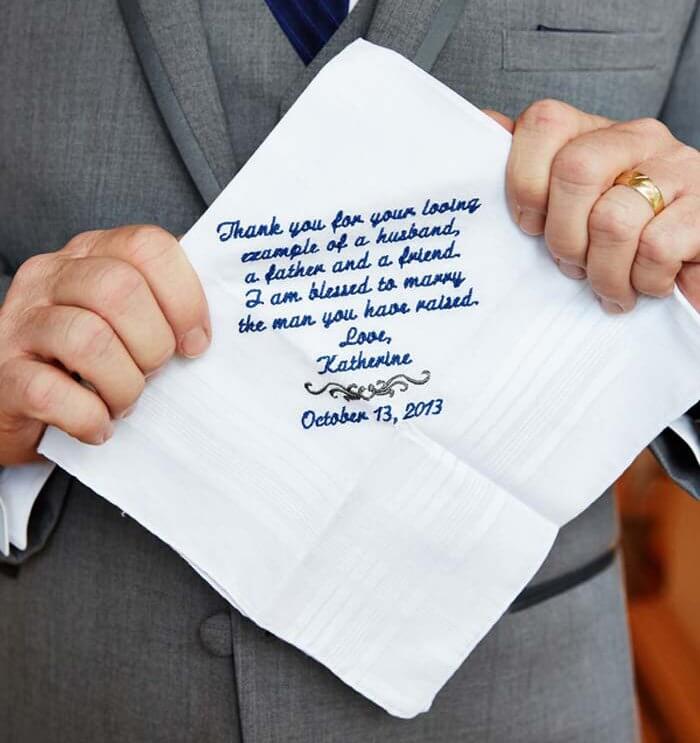 Thank you for your loving
example of a husband,
a father and a friend.
I am blessed to marry
the man you have raised.
Love,
Katherine
October 13, 2013